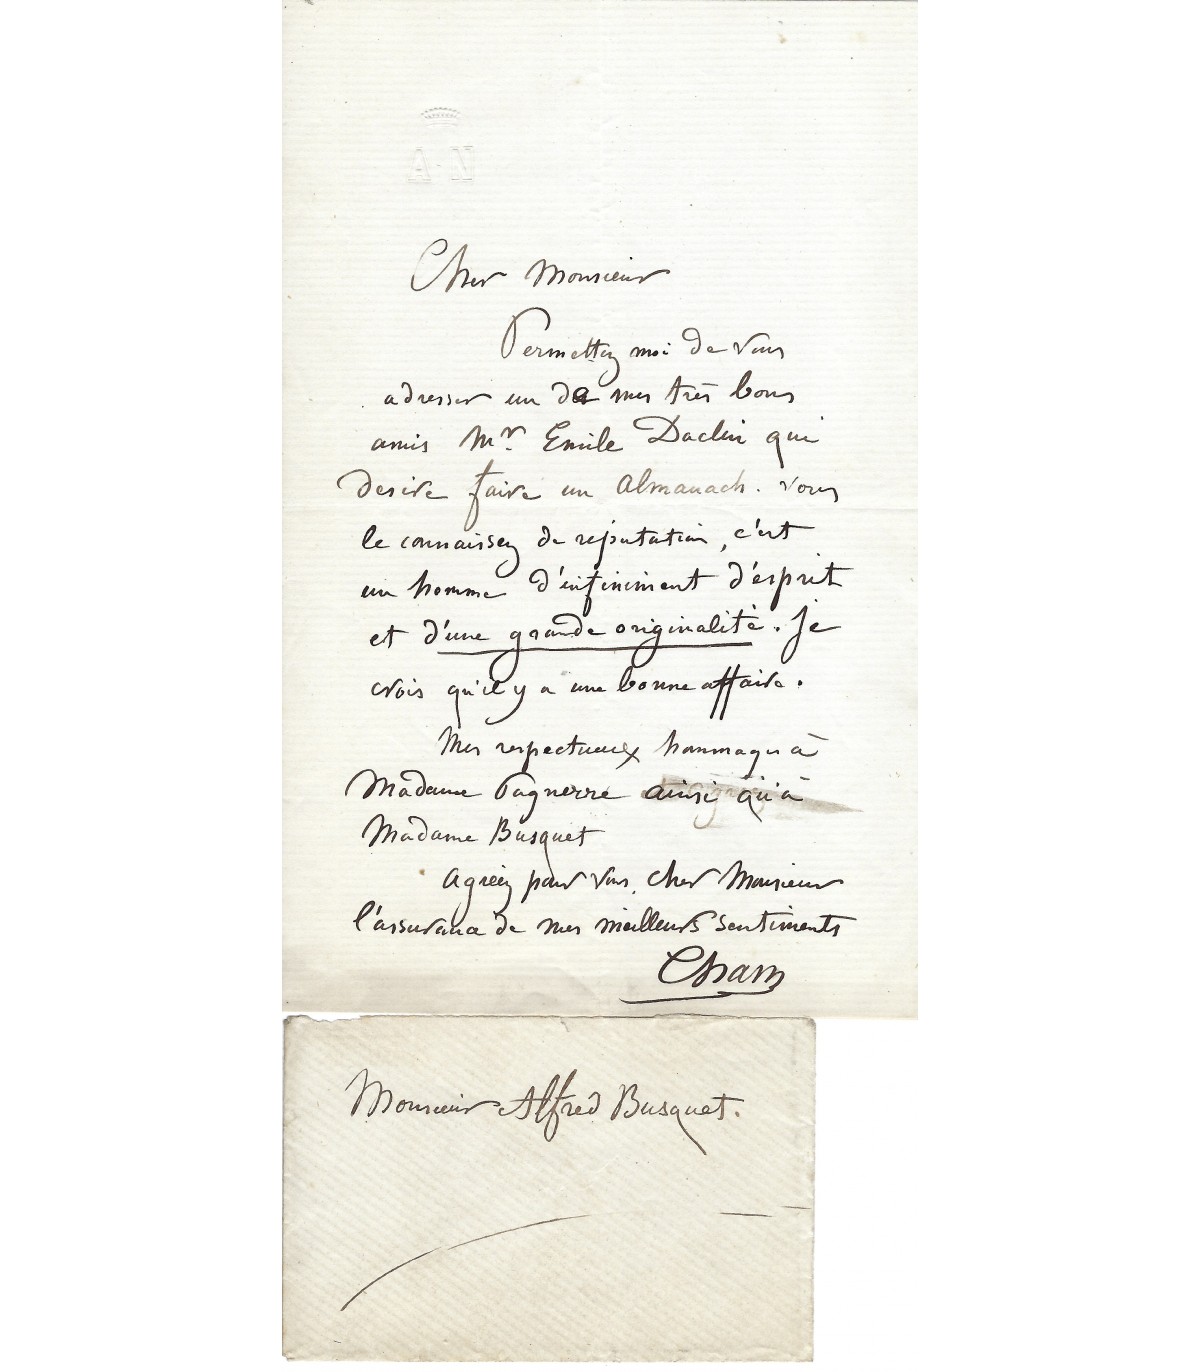 Cher Monsieur
Permettez moi de vous
adresser un de mes très bons
amis Mr. Emile Daclin qui
desire faire un almanach. vous
le connaissez de reputation, c'est
un homme d'infiniment d'esprit
et d'une grande originalité. Je
crois qu'il y a une bonne affaire.
Mes respectueux hommages à
Madame Pagnerre ainsi qu'à
Madame Busquet
agréez pour vous, cher Monsieur
l'assurance de mes meilleurs sentiments
Cham
Monsieur Alfred Busquet.